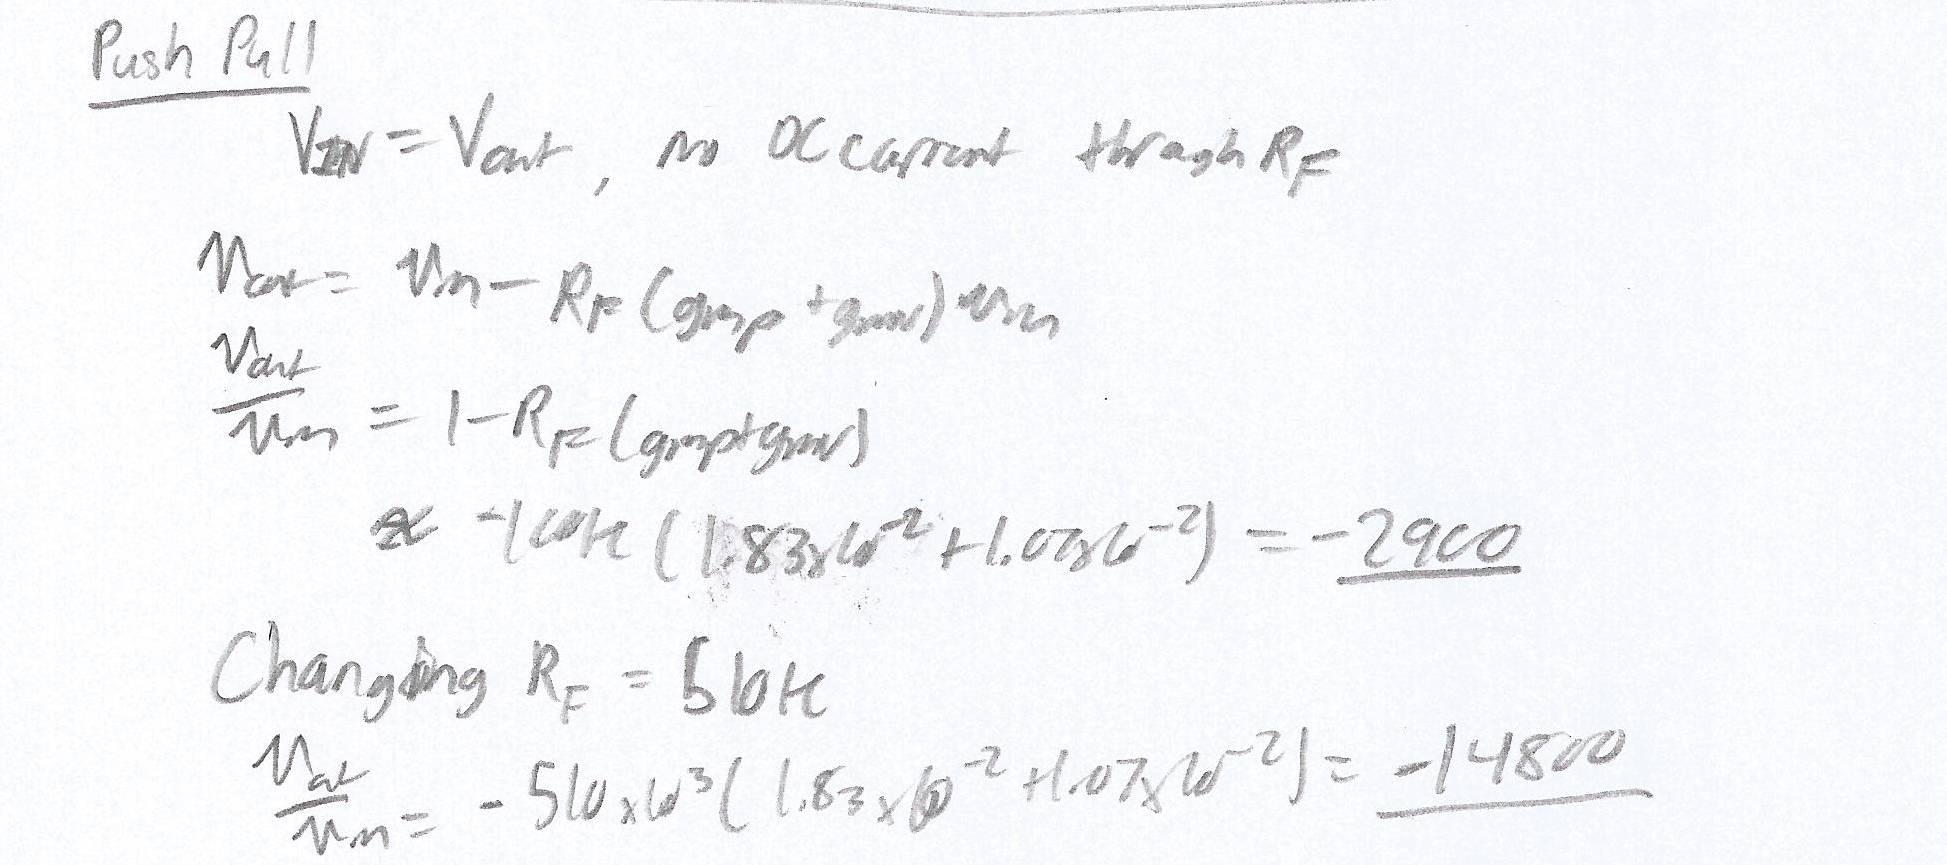 Push Pull
VIN = Vout, no DC current through RF
vout = vin - RF (gmp + gmn) vin
vout/vin = 1 - RF (gmp + gmn)
≈ -100k (1.83x10^-2 + 1.07x10^-2) = -2900
Changing RF = 510k
vout/vin = -510x10^3 (1.83x10^-2 + 1.07x10^-2) = -14800